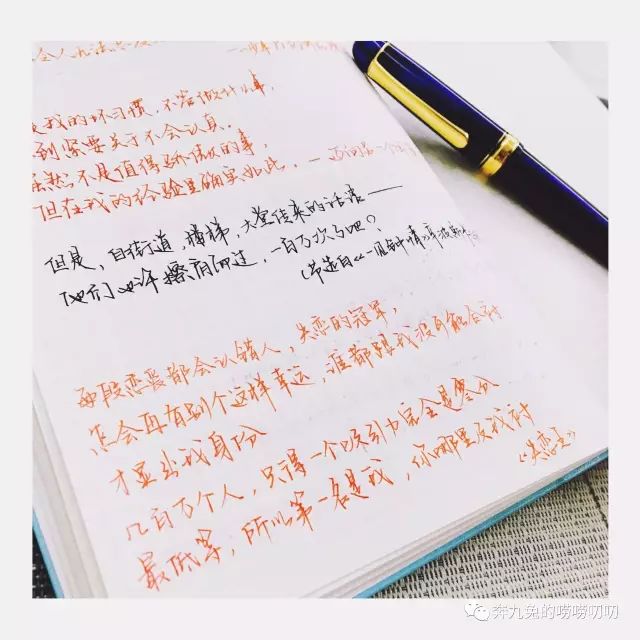 我的坏习惯，不岩做什么事，
到紧要关于不会认真，
虽然不是值得骄傲的事，
但在我的经验里确实如此。
但是，自街道，楼梯，大堂传来的话语——
他们也许擦肩而过，一百万次了吧？
（节选自《一见钟情》辛波斯卡
每段恋爱都会认错人，失恋的冠军，
怎会再有别个这样幸运，谁都跟我没可能合衬
才显出我身份
几百万个人，只得一个吸引力完全是零分
最低等，所以第一名是我，你哪里及我衬
《失恋王》
奔九兔的唠唠叨叨